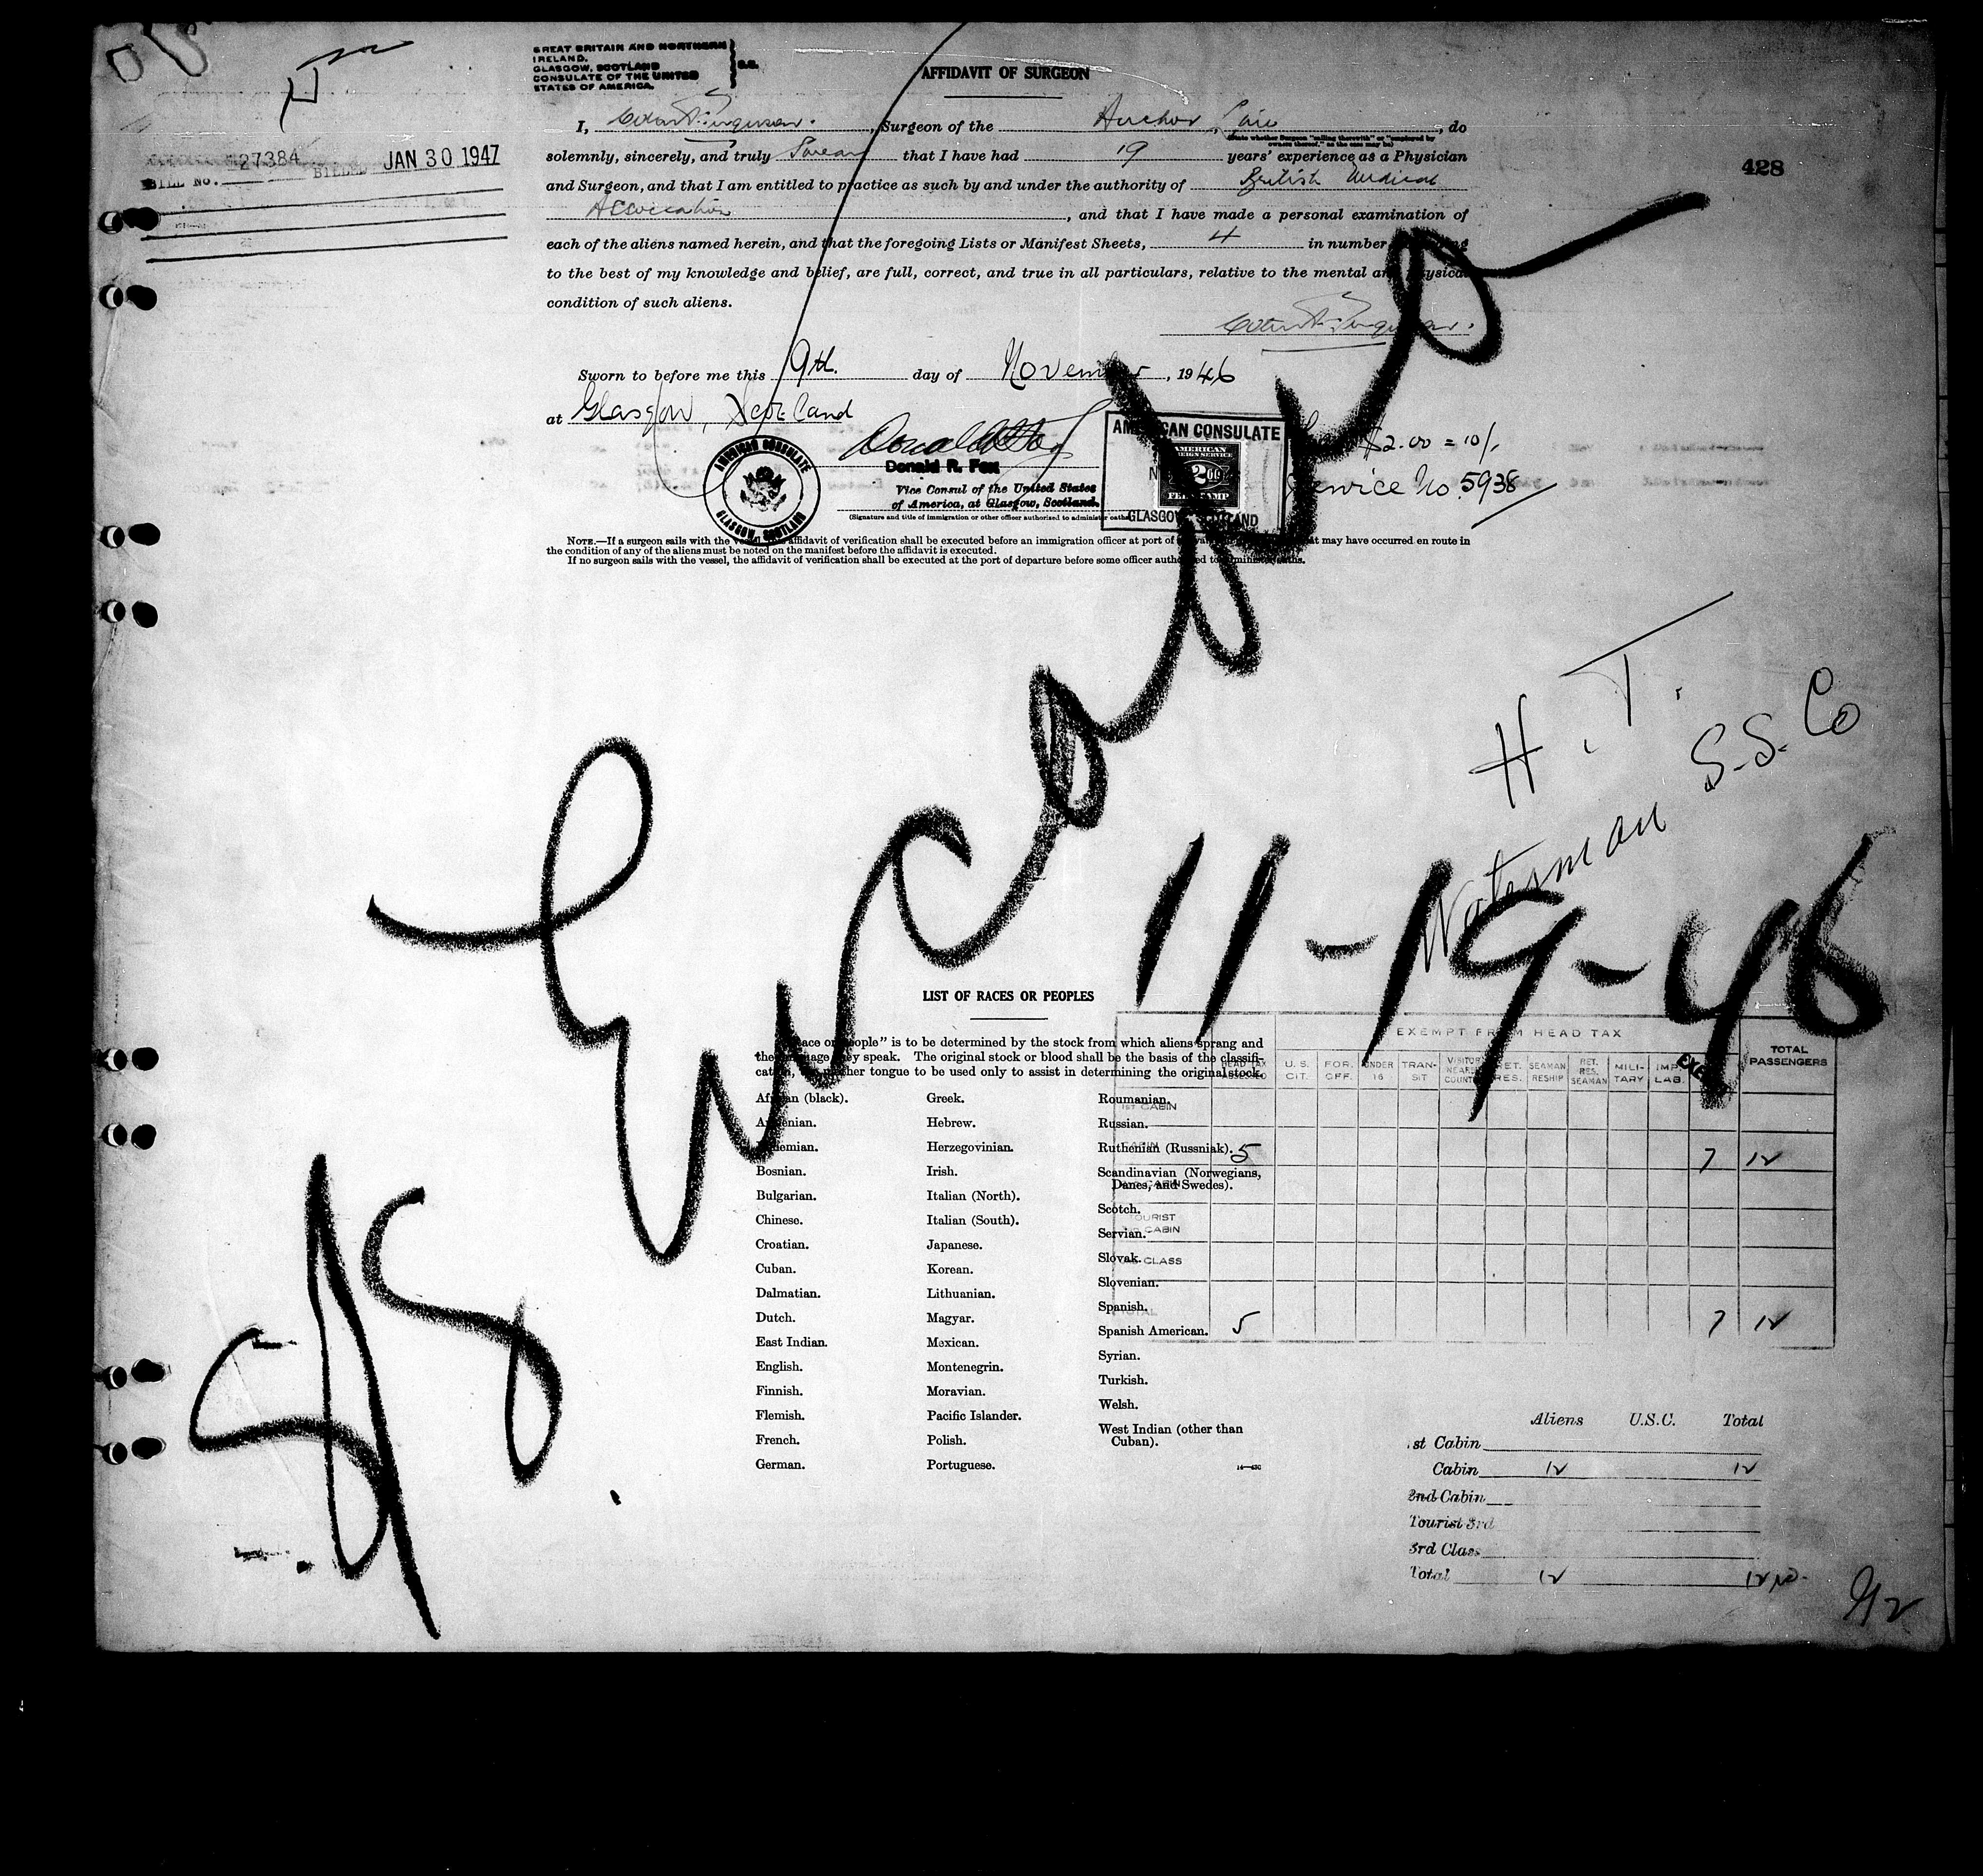 GREAT BRITAIN AND NORTHERN
IRELAND,
GLASGOW, SCOTLAND
CONSULATE OF THE UNITED
STATES OF AMERICA.
S.S.
AFFIDAVIT OF SURGEON
I, Ferguson, Surgeon of the Anchor Line, do
(State whether Surgeon "sailing therewith" or "employed by
owners thereof," as the case may be)
solemnly, sincerely, and truly Swear that I have had 19 years' experience as a Physician
and Surgeon, and that I am entitled to practice as such by and under the authority of British Medical
Association, and that I have made a personal examination of
each of the aliens named herein, and that the foregoing Lists or Manifest Sheets, 4 in number,
to the best of my knowledge and belief, are full, correct, and true in all particulars, relative to the mental and physical
condition of such aliens.
BILL No. 27384 BILLED JAN 30 1947
428
Sworn to before me this 9th. day of November, 1946
at Glasgow, Scotland
Donald R. Fox
Vice Consul of the United States
of America, at Glasgow, Scotland.
(Signature and title of immigration or other officer authorized to administer oaths)
AMERICAN CONSULATE
GLASGOW, SCOTLAND
AMERICAN CONSULATE
AMERICAN
FOREIGN SERVICE
FEE STAMP
GLASGOW SCOTLAND
$2.00 = 10/.
Service No. 5938
NOTE.—If a surgeon sails with the vessel, the affidavit of verification shall be executed before an immigration officer at port of may have occurred en route in
the condition of any of the aliens must be noted on the manifest before the affidavit is executed.
If no surgeon sails with the vessel, the affidavit of verification shall be executed at the port of departure before some officer authorized to administer oaths.
H. T.
Waterman S.S. Co
11-19-46
SS.
LIST OF RACES OR PEOPLES
"Race or people" is to be determined by the stock from which aliens sprang and
the language they speak. The original stock or blood shall be the basis of the classifi-
cation, the mother tongue to be used only to assist in determining the original stock.
African (black).
Armenian.
Bohemian.
Bosnian.
Bulgarian.
Chinese.
Croatian.
Cuban.
Dalmatian.
Dutch.
East Indian.
English.
Finnish.
Flemish.
French.
German.
Greek.
Hebrew.
Herzegovinian.
Irish.
Italian (North).
Italian (South).
Japanese.
Korean.
Lithuanian.
Magyar.
Mexican.
Montenegrin.
Moravian.
Pacific Islander.
Polish.
Portuguese.
Roumanian.
Russian.
Ruthenian (Russniak).
Scandinavian (Norwegians,
Danes, and Swedes).
Scotch.
Servian.
Slovak.
Slovenian.
Spanish.
Spanish American.
Syrian.
Turkish.
Welsh.
West Indian (other than
Cuban).
EXEMPT FROM HEAD TAX
HEAD TAX
U.S. CIT.
FOR. OFF.
UNDER 16
TRANSIT
RET. RES.
SEAMAN RESHIP
RET. RES. SEAMAN
MILITARY
IMP. LAB.
EXEMPT
TOTAL PASSENGERS
1ST CABIN
CABIN 5 7 12
TOURIST
CABIN
CLASS
TOTAL 5 7 12
Aliens U.S.C. Total
1st Cabin
Cabin 12 12
2nd Cabin
Tourist 3rd
3rd Class
Total 12 12